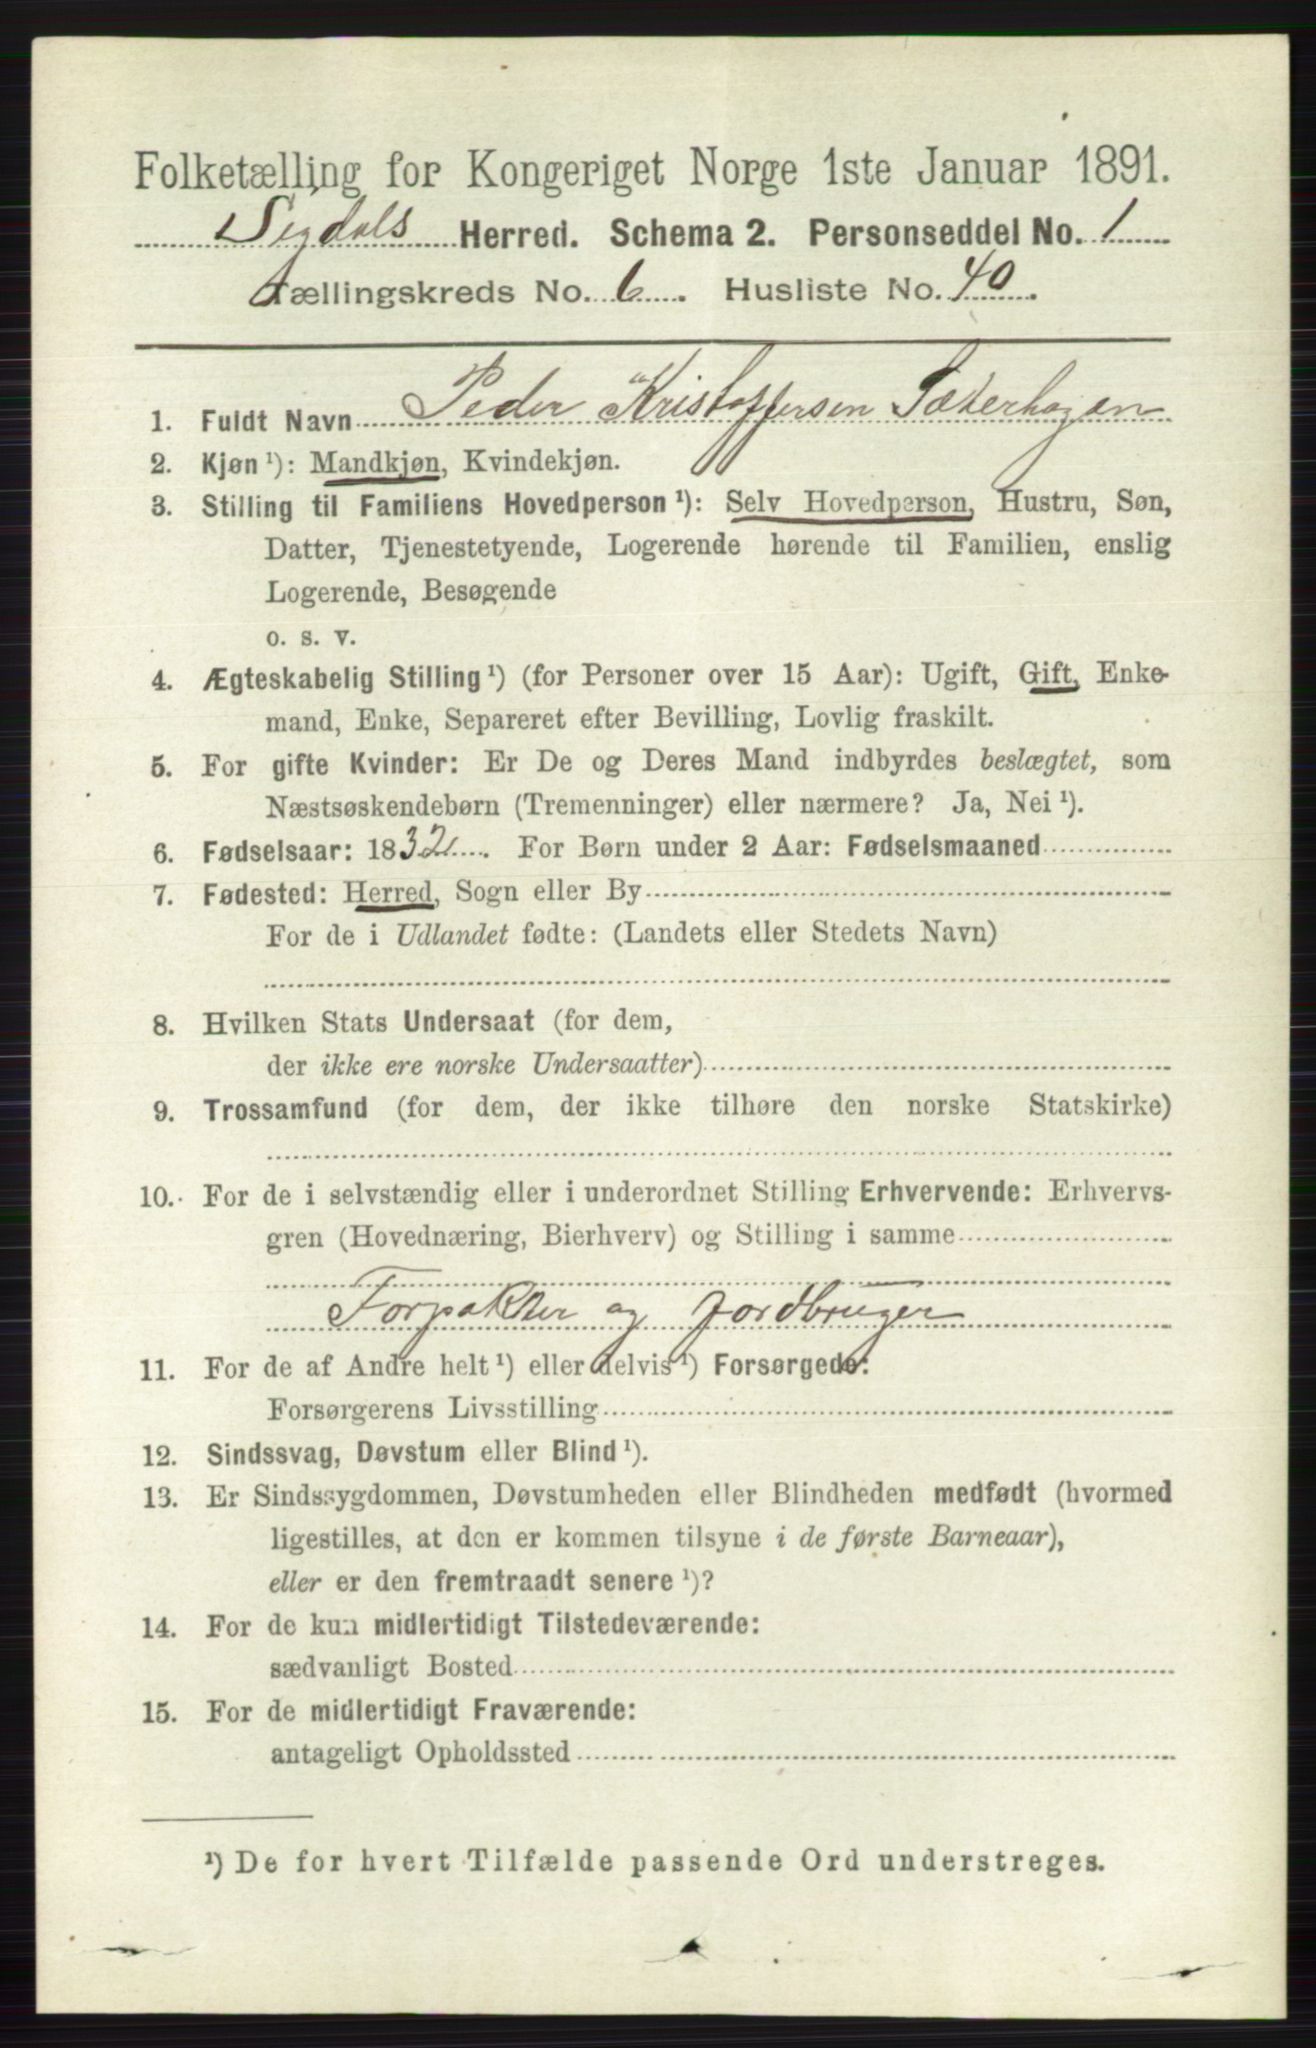 Folketælling for Kongeriget Norge 1ste Januar 1891.
Sigdals Herred. Schema 2. Personseddel No. 1
Tællingskreds No. 6. Husliste No. 40.
1. Fuldt Navn Peder Kristoffersen Sæterhagen
2. Kjøn ¹): Mandkjøn, Kvindekjøn.
3. Stilling til Familiens Hovedperson ¹): Selv Hovedperson, Hustru, Søn,
Datter, Tjenestetyende, Logerende hørende til Familien, enslig
Logerende, Besøgende
o. s. v.
4. Ægteskabelig Stilling ¹) (for Personer over 15 Aar): Ugift, Gift, Enke-
mand, Enke, Separeret efter Bevilling, Lovlig fraskilt.
5. For gifte Kvinder: Er De og Deres Mand indbyrdes beslægtet, som
Næstsøskendebørn (Tremenninger) eller nærmere? Ja, Nei ¹).
6. Fødselsaar: 1832. For Børn under 2 Aar: Fødselsmaaned
7. Fødested: Herred, Sogn eller By
For de i Udlandet fødte: (Landets eller Stedets Navn)
8. Hvilken Stats Undersaat (for dem,
der ikke ere norske Undersaatter)
9. Trossamfund (for dem, der ikke tilhøre den norske Statskirke)
10. For de i selvstændig eller i underordnet Stilling Erhvervende: Erhvervs-
gren (Hovednæring, Bierhverv) og Stilling i samme
Forpakter og Jordbruger
11. For de af Andre helt ¹) eller delvis ¹) Forsørgede:
Forsørgerens Livsstilling
12. Sindssvag, Døvstum eller Blind ¹).
13. Er Sindssygdommen, Døvstumheden eller Blindheden medfødt (hvormed
ligestilles, at den er kommen tilsyne i de første Barneaar),
eller er den fremtraadt senere ¹)?
14. For de kun midlertidigt Tilstedeværende:
sædvanligt Bosted
15. For de midlertidigt Fraværende:
antageligt Opholdssted
¹) De for hvert Tilfælde passende Ord understreges.